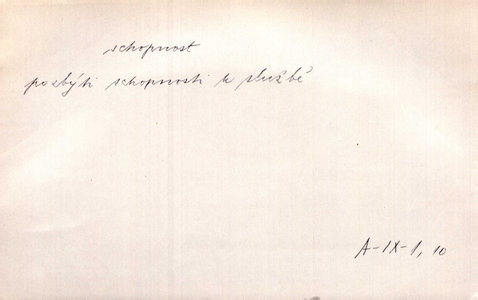 schopnost
pozbýti schopnosti k službě
A-IX-1, 10